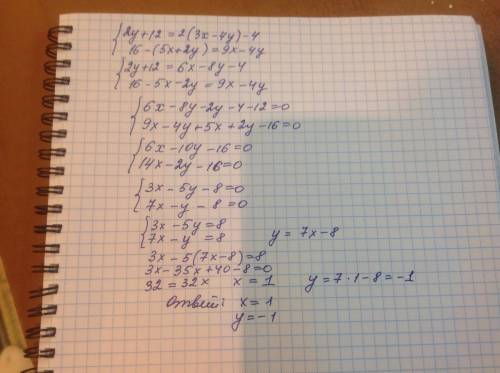 {2y+12=2(3x-4y)-4
{16-(5x+2y)=9x-4y
{2y+12=6x-8y-4
{16-5x-2y=9x-4y
{6x-8y-2y-4-12=0
{9x-4y+5x+2y-16=0
{6x-10y-16=0
{14x-2y-16=0
{3x-5y-8=0
{7x-y-8=0
{3x-5y=8
{7x-y=8 y=7x-8
3x-5(7x-8)=8
3x-35x+40-8=0
32=32x x=1 y=7·1-8=-1
Ответ: x=1
y=-1